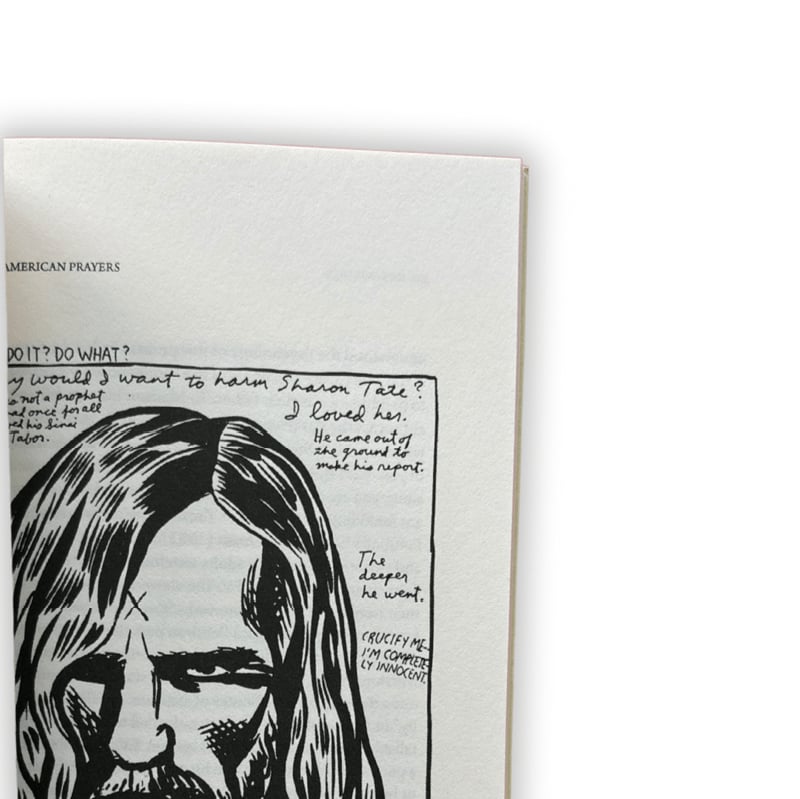 AMERICAN PRAYERS
DO IT? DO WHAT?
would I want to harm Sharon Tate?
not a prophet
once for all
his Sinai
Tabor.
I loved her.
He came out of
the ground to
make his report.
The
deeper
he went.
CRUCIFY ME—
I'M COMPLETE-
LY INNOCENT.